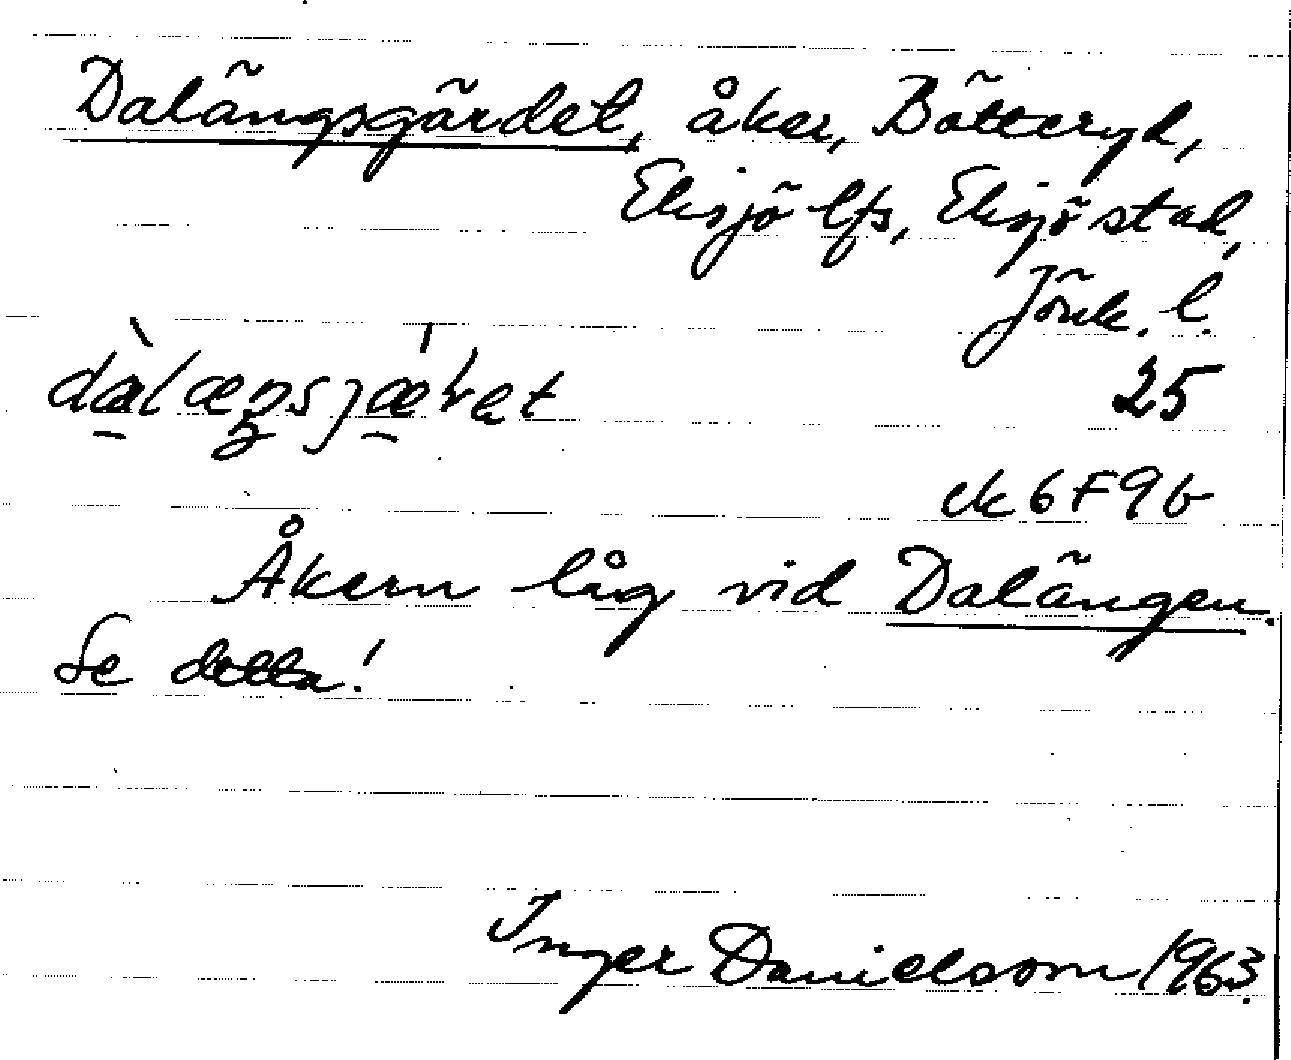 Dalängsgärdet, åker, Bötteryd,
Eksjö lfs, Eksjö stad,
Jönk. l.
25
ek 6 F 9 b
Åkern låg vid Dalängen.
Se detta!
Inger Danielsson 1963.